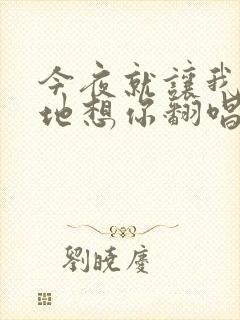 今夜就讓我
地想你翻唱
劉曉慶